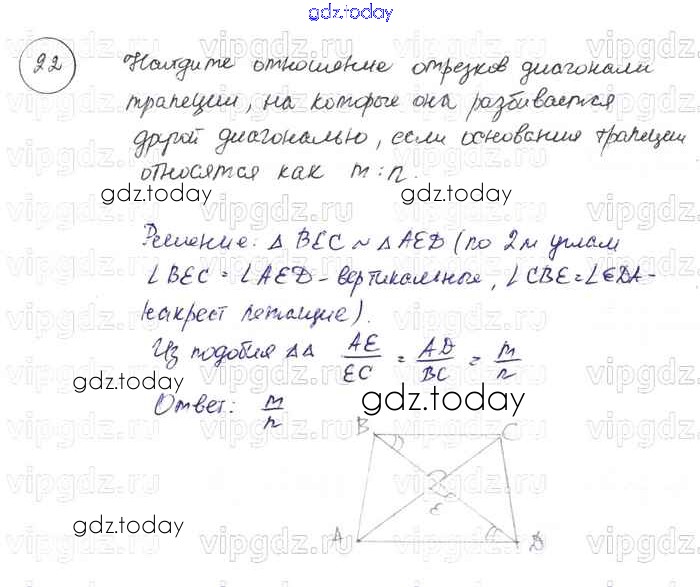 gdz.today
22
Найдите отношение отрезков диагонали
трапеции, на которые она разбивается
другой диагональю, если основания трапеции
относятся как m:n.
gdz.today
gdz.today
Решение: △ BEC ~ △ AED (по 2м углам
∠ BEC = ∠ AED - вертикальные, ∠ CBE = ∠ EDA -
накрест лежащие).
Из подобия △△ AE/EC = AD/BC = m/n
gdz.today
gdz.today
Ответ: m/n
B C
E
gdz.today
gdz.today
A D
vipgdz.ru